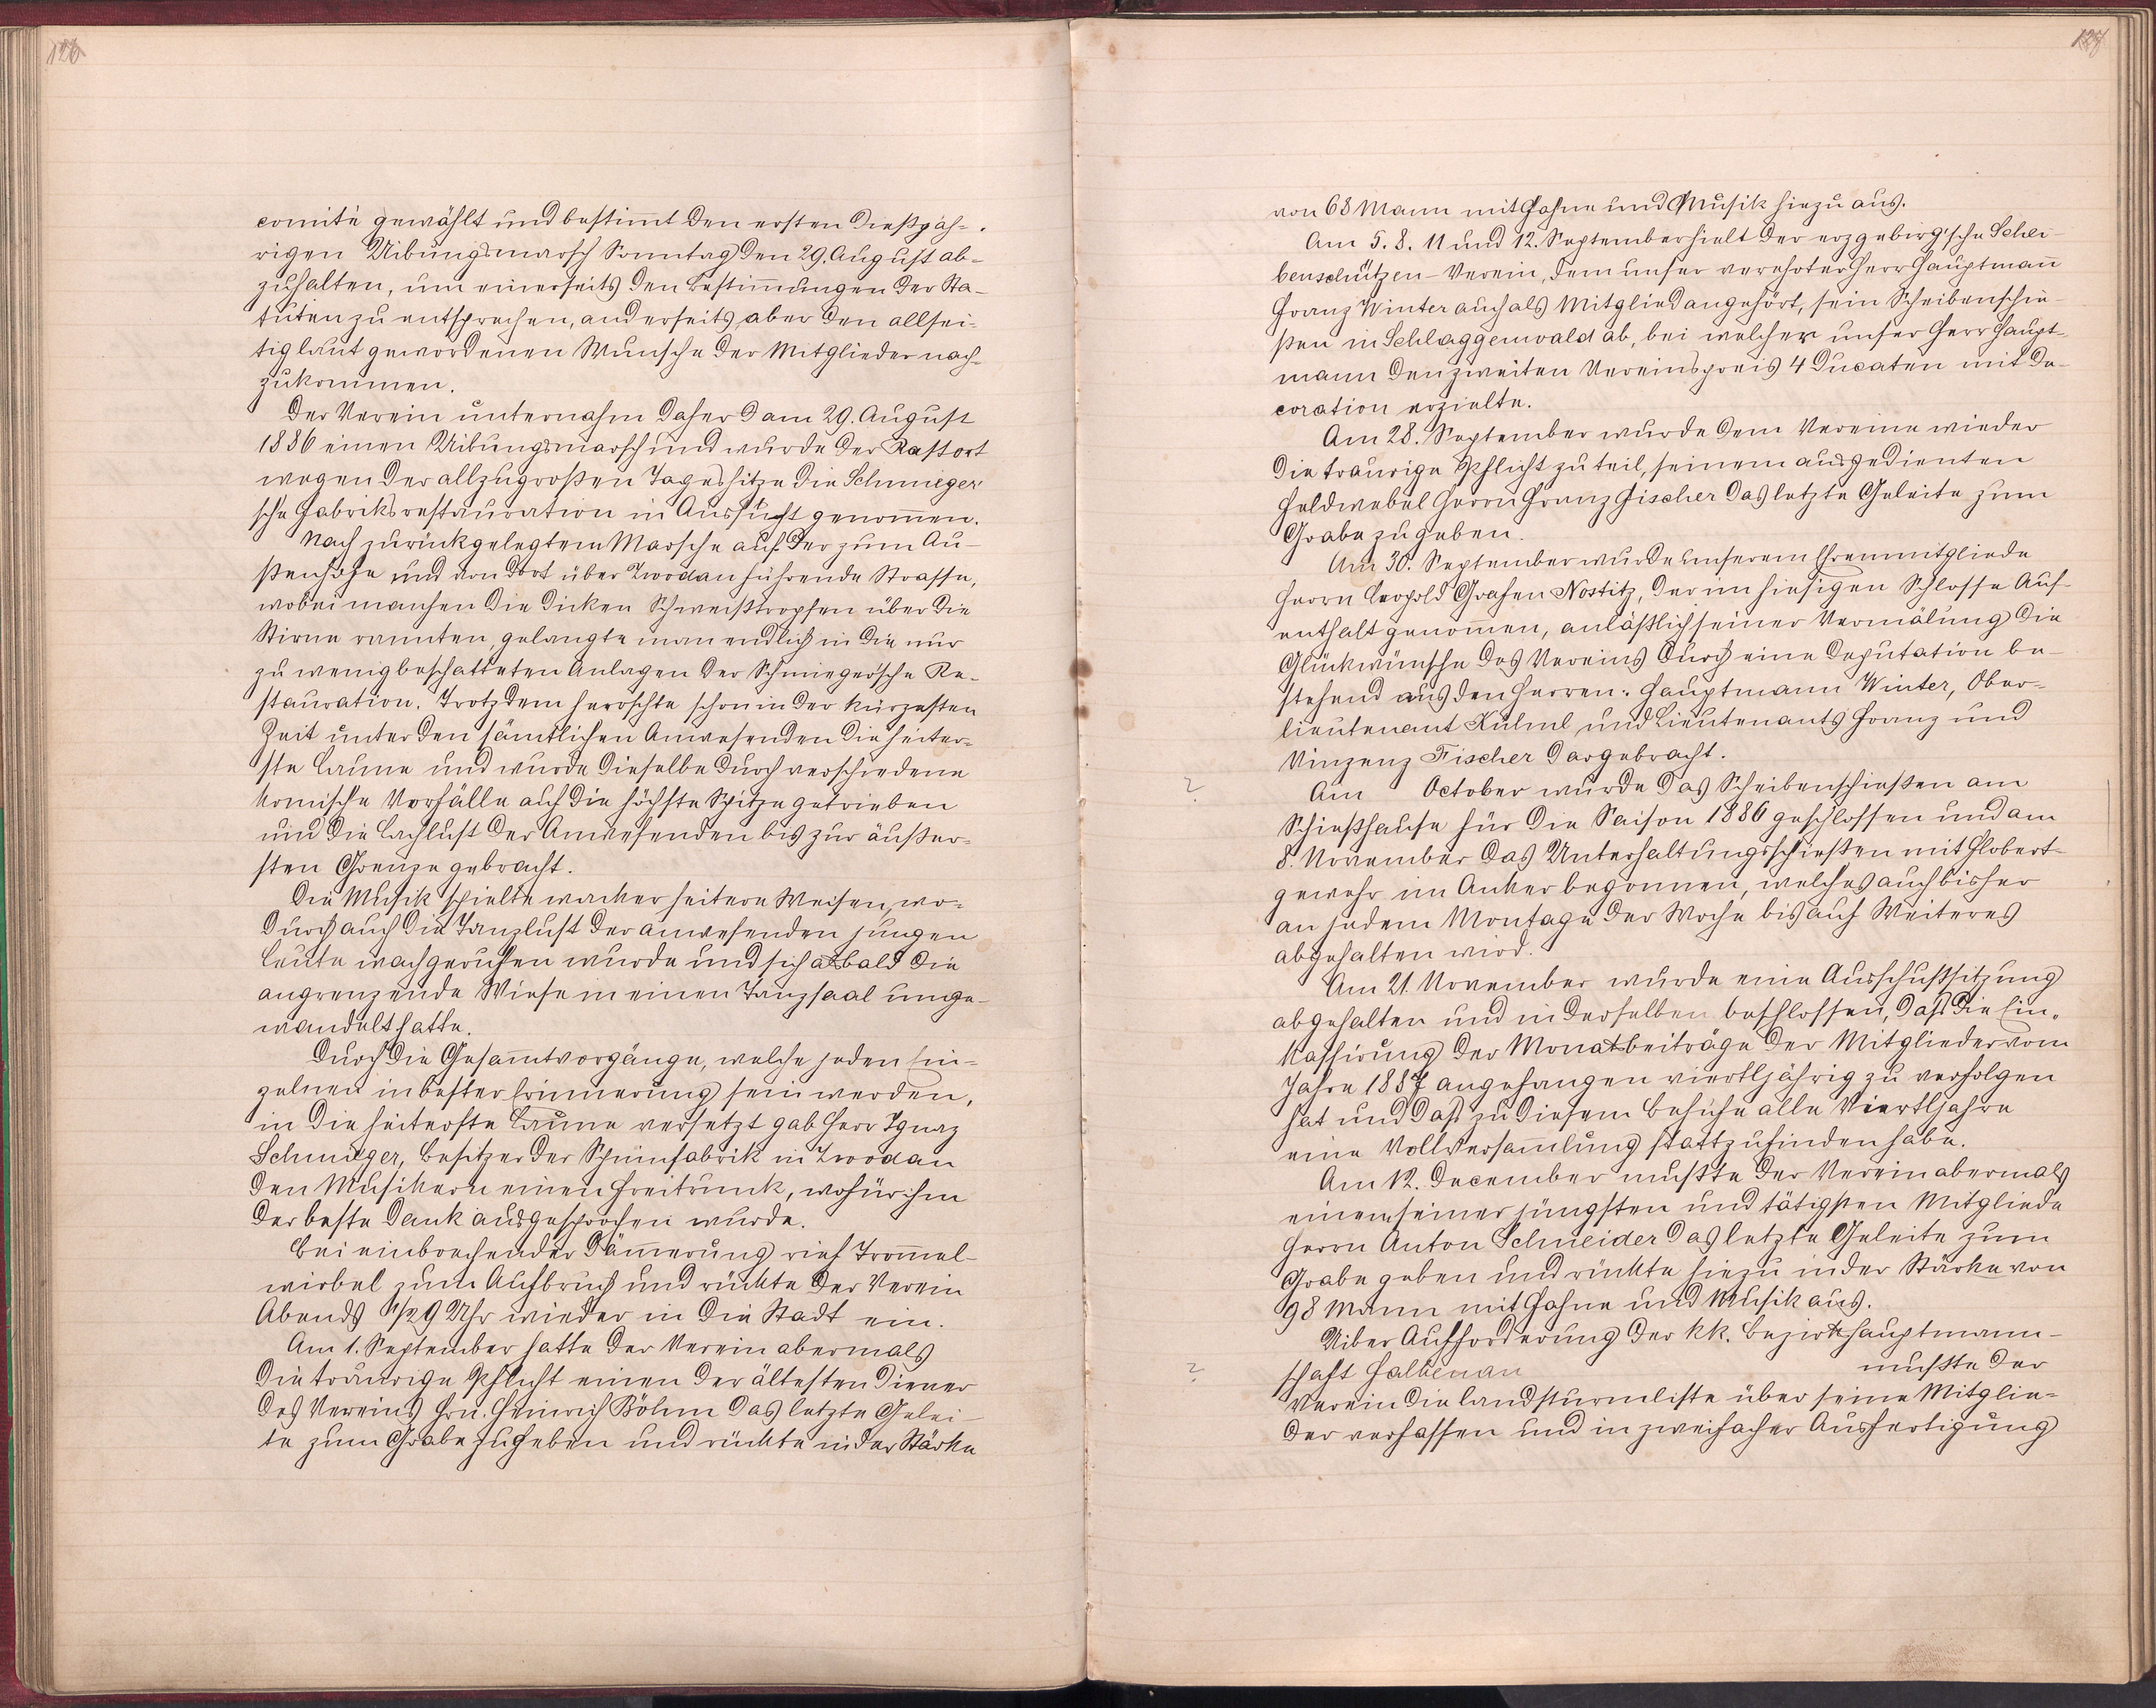 126
comité gewählt und bestimt den ersten dießjäh-
rigen Uibungsmarsch Sonntag den 29. August ab-
zuhalten, um einerseits den Bestimungen der Sta-
tuten zu entsprechen, anderseits aber den allsei-
tig laut gewordenen Wunsche der Mitglieder nach-
zukommen.
Der Verein unternahm daher am 29. August
1886 einen Uibungsmarsch und wurde der Rastort
wegen der allzugroßen Tageshitze die Schmieger'
sche Fabriksrestauration in Aussicht genomen.
Nach zurückgelegtem Marsche auf der zum Au-
ßenhofe und von dort über Zwodau führende Strasse,
wobei manchen die dicken Schweißtropfen über die
Stirne rannten, gelangte man endlich in die nur
zu wenig beschatteten Anlagen der Schmieger'sche Re-
stauration. Trotzdem herrschte schon in der kürzesten
Zeit unter den sämtlichen Anwesenden die heiter-
ste Laune und wurde dieselbe durch verschiedene
komische Vorfälle auf die höchste Spitze getrieben
und die Lachlust der Anwesenden bis zur äußer-
sten Grenze gebracht.
Die Musik spielte wacker heitere Weisen, wo-
durch auch die Tanzlust der anwesenden jungen
Leute wachgerufen wurde und sich alsbald die
angrenzende Wiese in einen Tanzsaal umge-
wandelt hatte.
Durch die Gesamtvorgänge, welche jeden Ein-
zelnen in bester Erinnerung sein werden,
in die heiterste Laune versetzt gab Herr Ignaz
Schmieger, Besitzer der Spinnfabrik in Zwodau
den Musikern einen Freitrunk, wofür ihm
der beste Dank ausgesprochen wurde.
Bei einbrechender Dämerung rief Tromel-
wirbel zum Aufbruch und rückte der Verein
Abends 1/2 9 Uhr wieder in die Stadt ein.
Am 1. September hatte der Verein abermals
die traurige Pflicht einen der ältesten Diener
des Vereins Hrn. Heinrich Böhm das letzte Gelei-
te zum Grabe zu geben und rückte in der Stärke
127
von 68 Mann mit Fahne und Musik hiezu aus.
Am 5. 8. 11 und 12. September hielt der erzgebirg'sche Schei-
benschützen-Verein, dem unser verehrter Herr Hauptmann
Franz Winter auch als Mitglied angehört, sein Scheibenschie-
ßen in Schlaggenwald ab, bei welcher unser Herr Haupt-
mann den zweiten Vereinspreis 4 Ducaten mit De-
coration erzielte.
Am 28. September wurde dem Vereine wieder
die traurige Pflicht zu teil, seinem ausgedienten
Feldwebel Herrn Franz Fischer das letzte Geleite zum
Grabe zu geben.
Am 30. September wurde unserem Ehrenmitgliede
Herrn Leopold Grafen Nostitz, der im hiesigen Schlosse Auf-
enthalt genomen, anläßlich seiner Vermälung die
Glückwünsche des Vereins durch eine Deputation be-
stehend aus den Herren: Hauptmann Winter, Ober-
lieutenant Külml und Lieutenants Franz und
Vinzenz Fischer dargebracht.
? Am October wurde das Scheibenschießen am
Schießhause für die Saison 1886 geschlossen und am
8. November das Unterhaltungsschießen mit Flobert-
gewehr im Anker begonnen, welches auch bisher
an jedem Montage der Woche bis auf Weiteres
abgehalten wird.
Am 21. November wurde eine Ausschußsitzung
abgehalten und in derselben beschlossen, daß die Ein-
kassirung der Monatbeiträge der Mitglieder vom
Jahre 1887 angefangen viertljährig zu verfolgen
hat und daß zu diesem Behufe alle Viertljahre
eine Vollversamlung stattzufinden habe.
Am 12. December mußte der Verein abermals
einem seiner jüngsten und tätigsten Mitgliede
Herrn Anton Schneider das letzte Geleite zum
Grabe geben und rückte hiezu in der Stärke von
98 Mann mit Fahne und Musik aus.
Uiber Aufforderung der kk. Bezirkshauptmann-
? schaft Falkenau mußte der
Verein die Landsturmliste über seine Mitglie-
der verfassen und in zweifacher Ausfertigung